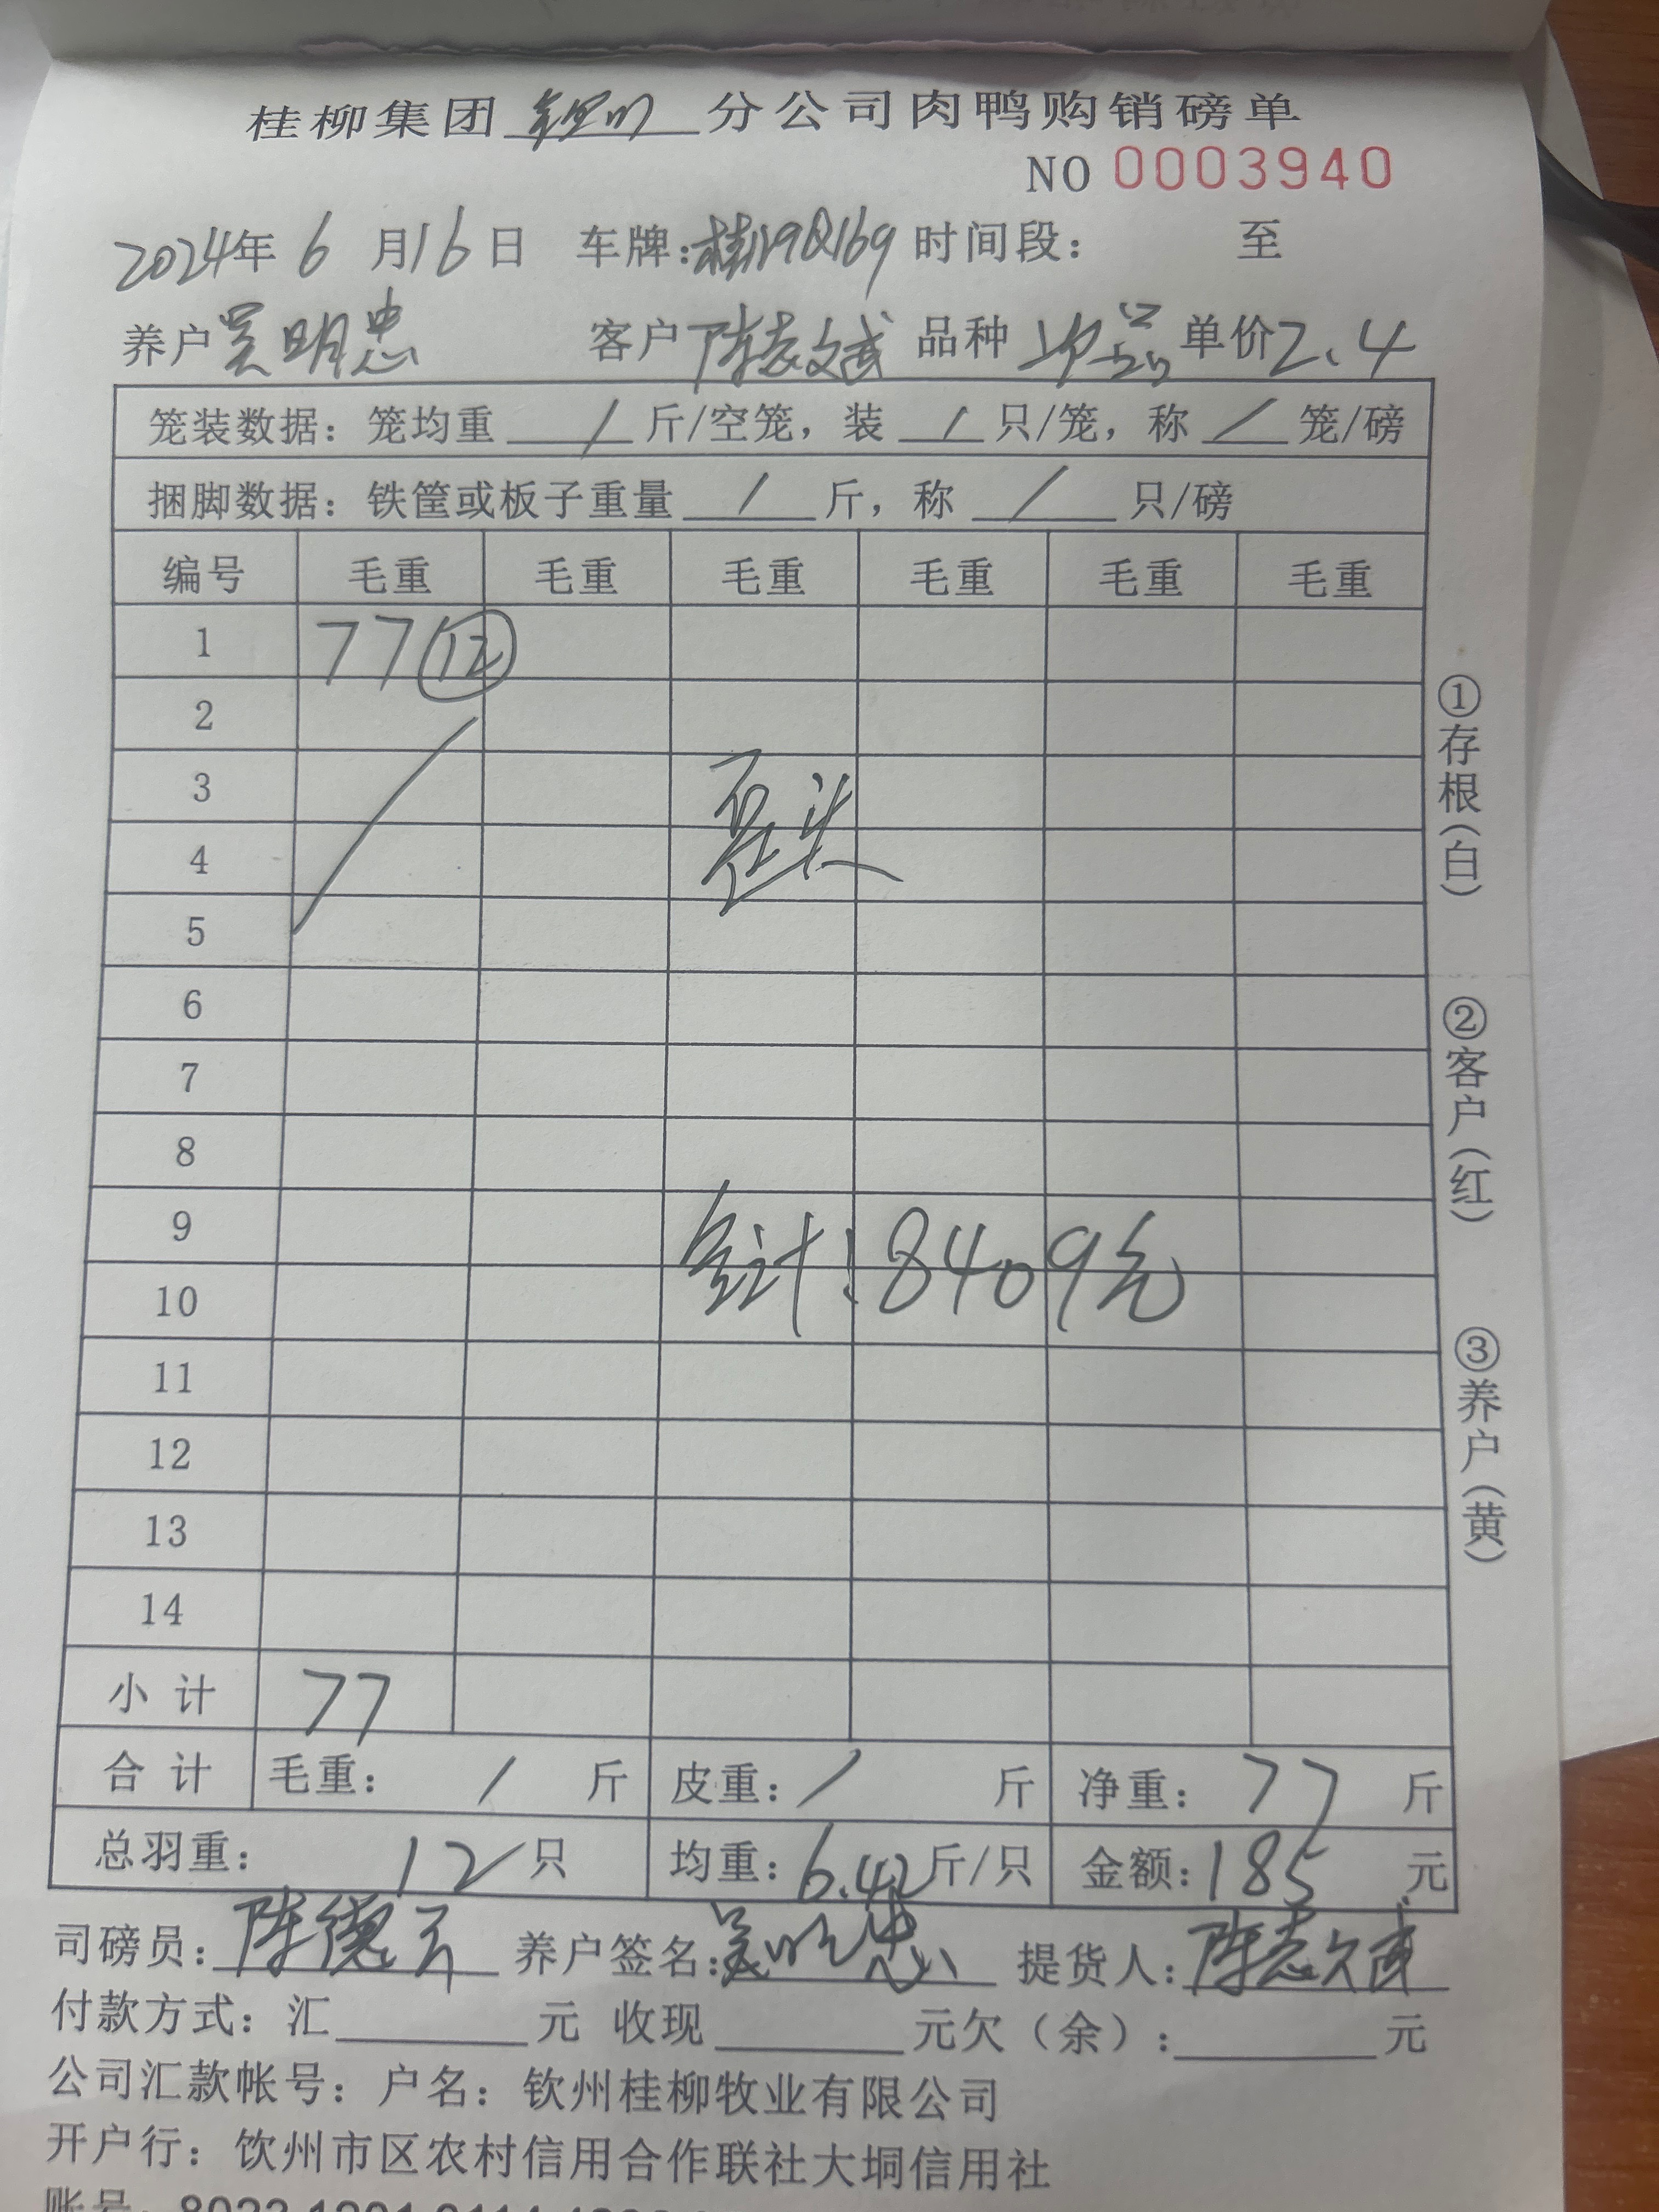 桂柳集团钦州分公司肉鸭购销磅单
NO 0003940
2024年 6 月16日 车牌: 时间段: 至
养户吴明忠 客户陈志文武 品种 次品 单价2.4
笼装数据: 笼均重 / 斤/空笼, 装 / 只/笼, 称 / 笼/磅
捆脚数据: 铁筐或板子重量 / 斤, 称 / 只/磅
编号 毛重 毛重 毛重 毛重 毛重 毛重
1 77 12
2
3
歪头
4
5
6
7
8
9
合计: 8409元
10
11
12
13
14
小计 77
合计 毛重: / 斤 皮重: / 斤 净重: 77 斤
总羽重: 12 只 均重: 6.42斤/只 金额: 185 元
司磅员: 陈德 养户签名: 吴明忠 提货人: 陈志
付款方式: 汇 元 收现 元欠(余): 元
公司汇款帐号: 户名: 钦州桂柳牧业有限公司
开户行: 钦州市区农村信用合作联社大垌信用社
账号:
①存根(白)
②客户(红)
③养户(黄)